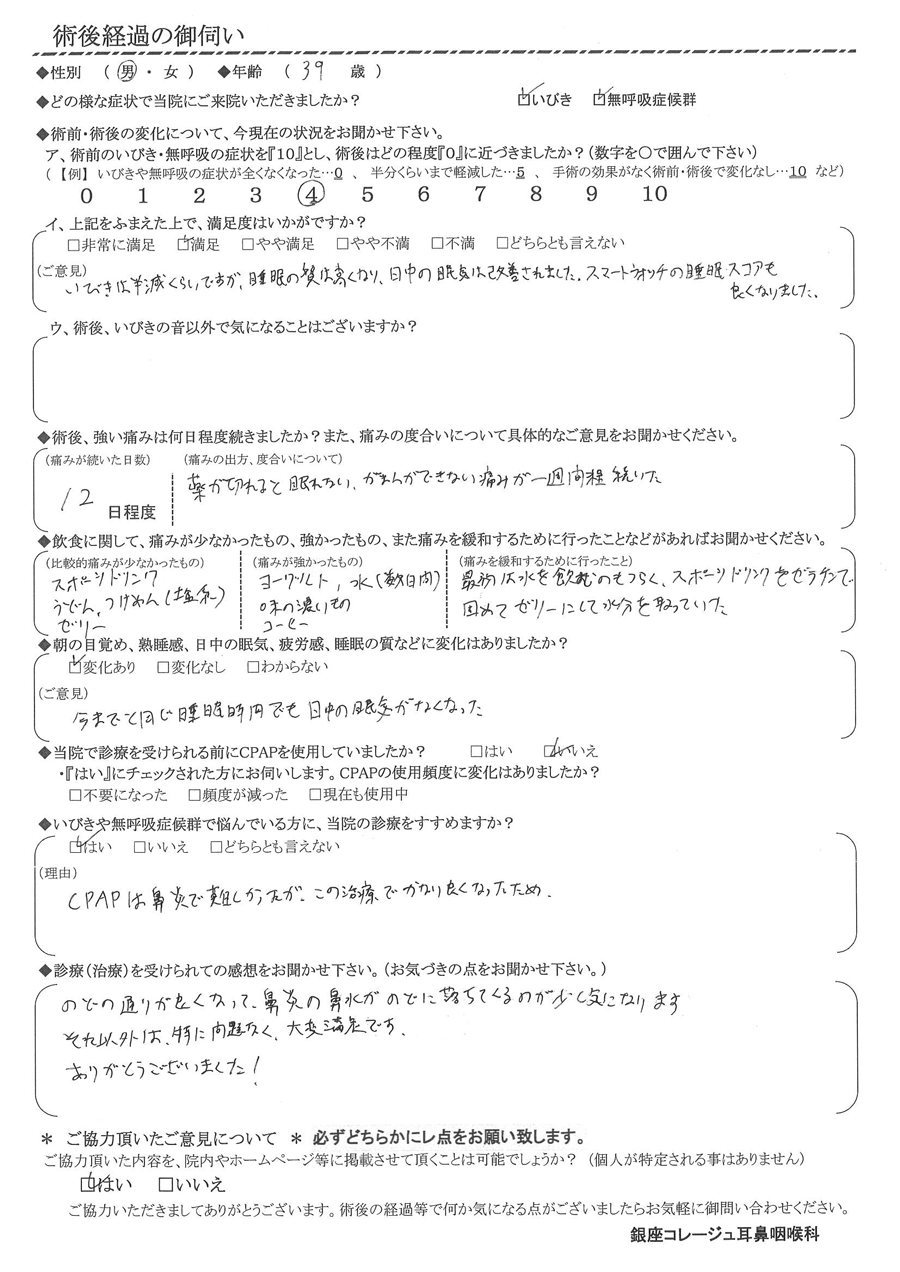 術後経過の御伺い
◆性別 （ 男 ・ 女 ） ◆年齢 （ 39 歳 ）
◆どの様な症状で当院にご来院いただきましたか？ ☑いびき ☑無呼吸症候群
◆術前・術後の変化について、今現在の状況をお聞かせ下さい。
ア、術前のいびき・無呼吸の症状を『10』とし、術後はどの程度『0』に近づきましたか？（数字を〇で囲んで下さい）
（ 【例】 いびきや無呼吸の症状が全くなくなった…0 、 半分くらいまで軽減した…5 、 手術の効果がなく術前・術後で変化なし…10 など）
0 1 2 3 ④ 5 6 7 8 9 10
イ、上記をふまえた上で、満足度はいかがですか？
□非常に満足 ☑満足 □やや満足 □やや不満 □不満 □どちらとも言えない
（ご意見）
いびきは半減くらいですが、睡眠の質は高くなり、日中の眠気は改善されました。スマートウォッチの睡眠スコアも
良くなりました。
ウ、術後、いびきの音以外で気になることはございますか？
◆術後、強い痛みは何日程度続きましたか？また、痛みの度合いについて具体的なご意見をお聞かせください。
（痛みが続いた日数） （痛みの出方、度合いについて）
薬が切れると眠れない、がまんができない痛みが一週間程続いた
12 日程度
◆飲食に関して、痛みが少なかったもの、強かったもの、また痛みを緩和するために行ったことなどがあればお聞かせください。
（比較的痛みが少なかったもの） （痛みが強かったもの） （痛みを緩和するために行ったこと）
スポーツドリンク ヨーグルト，水（数日間） 最初は水を飲むのもつらく、スポーツドリンクをゼラチンで
うどん，つけめん（塩系） 味の濃いもの 固めてゼリーにして水分を取っていた
ゼリー コーヒー
◆朝の目覚め、熟睡感、日中の眠気、疲労感、睡眠の質などに変化はありましたか？
☑変化あり □変化なし □わからない
（ご意見）
今までと同じ睡眠時間でも日中の眠気がなくなった
◆当院で診療を受けられる前にCPAPを使用していましたか？ □はい ☑いいえ
・『はい』にチェックされた方にお伺いします。CPAPの使用頻度に変化はありましたか？
□不要になった □頻度が減った □現在も使用中
◆いびきや無呼吸症候群で悩んでいる方に、当院の診療をすすめますか？
☑はい □いいえ □どちらとも言えない
（理由）
CPAPは鼻炎で難しかったが、この治療でかなり良くなったため．
◆診療（治療）を受けられての感想をお聞かせ下さい。（お気づきの点をお聞かせ下さい。）
のどの通りが良くなって、鼻炎の鼻水がのどに落ちてくるのが少し気になります
それ以外は、特に問題なく、大変満足です．
ありがとうございました！
＊ ご協力頂いたご意見について ＊ 必ずどちらかにレ点をお願い致します。
ご協力頂いた内容を、院内やホームページ等に掲載させて頂くことは可能でしょうか？ （個人が特定される事はありません）
☑はい □いいえ
ご協力いただきましてありがとうございます。術後の経過等で何か気になる点がございましたらお気軽に御問い合わせください。
銀座コレージュ耳鼻咽喉科